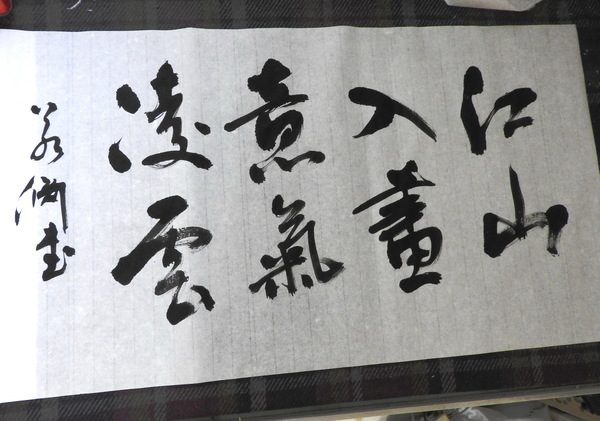 江山
入畫
意氣
凌雲
書